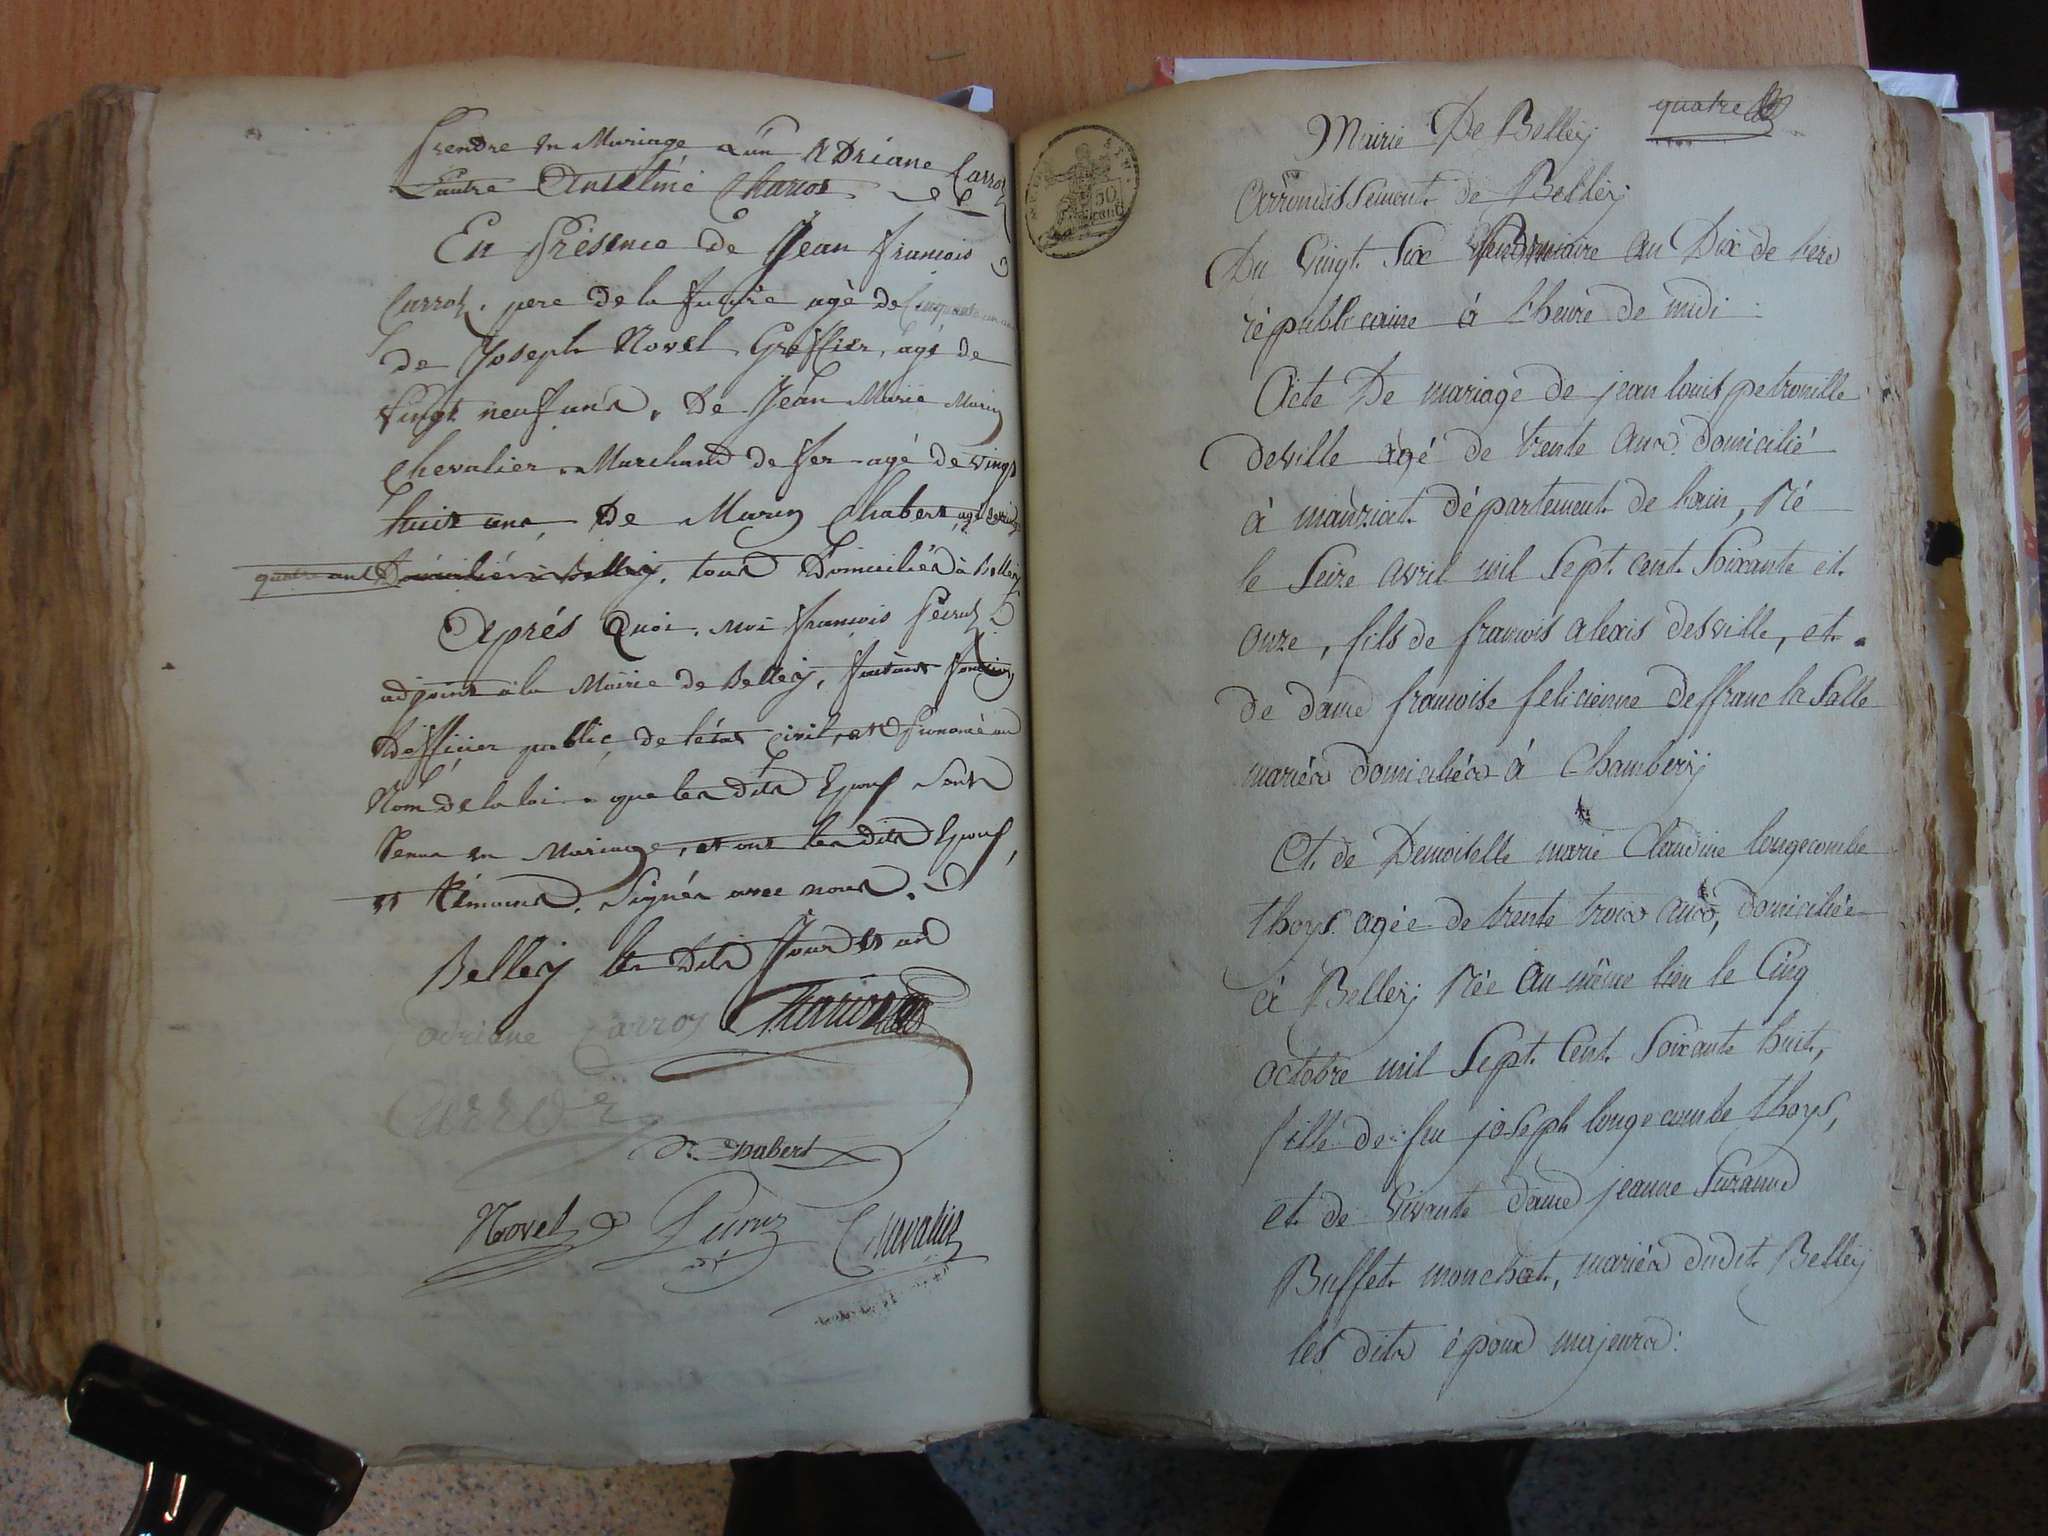 Prendre en Mariage L'un Adriane Carroz
L'autre Anselme
En Présence de Jean François
Carroz, pere de la future agé de Cinquante
de Joseph Novel Greffier, agé de
vingt neuf ans, De Jean Marie
Chevalier Marchand de fer agé de vingt
huit ans, De Marin Chabert agé de vingt
quatre ans Domiciliés à Belley, tous Domiciliés à Belley
Après Quoi, moi françois
adjoint à la Mairie de Belley, faisant fonction
D'officier public, de l'état civil, at Prononcé au
Nom de la loi que les dits Epoux Sont
Venus en Mariage, et ont les dits Epoux,
et témoins, Signés avec nous.
Belley les Dits Jour et an
adriane Carroz
Carroz
Chabert
Novel
Chevalier
quatre
Mairie De Belley
50 Cent
Arrondissement de Belley
Du Vingt Six Vendemiaire an Dix de l'ere
républicaine à l'heure de midi
Acte De mariage de jean louis petronille
deville agé de trente ans domicilié
à mauziat département de lain, Né
le Seize avril mil Sept cent Soixante et
onze, fils de francois alexis desville, et
de dame francoise felicienne deffranc la Salle
mariés domiciliés à Chambery
Et de Demoiselle marie Claudine longecombe
thoys agée de trente trois ans, domiciliée
à Belley Née au même lieu le Cinq
octobre mil Sept Cent Soixante huit,
fille de feu joseph longecombe thoys,
et de vivante dame jeanne Suzanne
Buffet monchat, mariés dudit Belley
les dits époux majeurs.